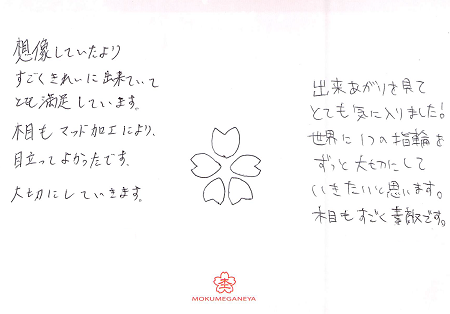 想像していたより
すごくきれいに出来ていて
とても満足しています。
木目もマッド加工により、
目立ってよかったです。
大切にしていきます。
出来あがりを見て
とても気に入りました!
世界に1つの指輪を
ずっと大切にして
いきたいと思います。
木目もすごく素敵です。
MOKUMEGANEYA